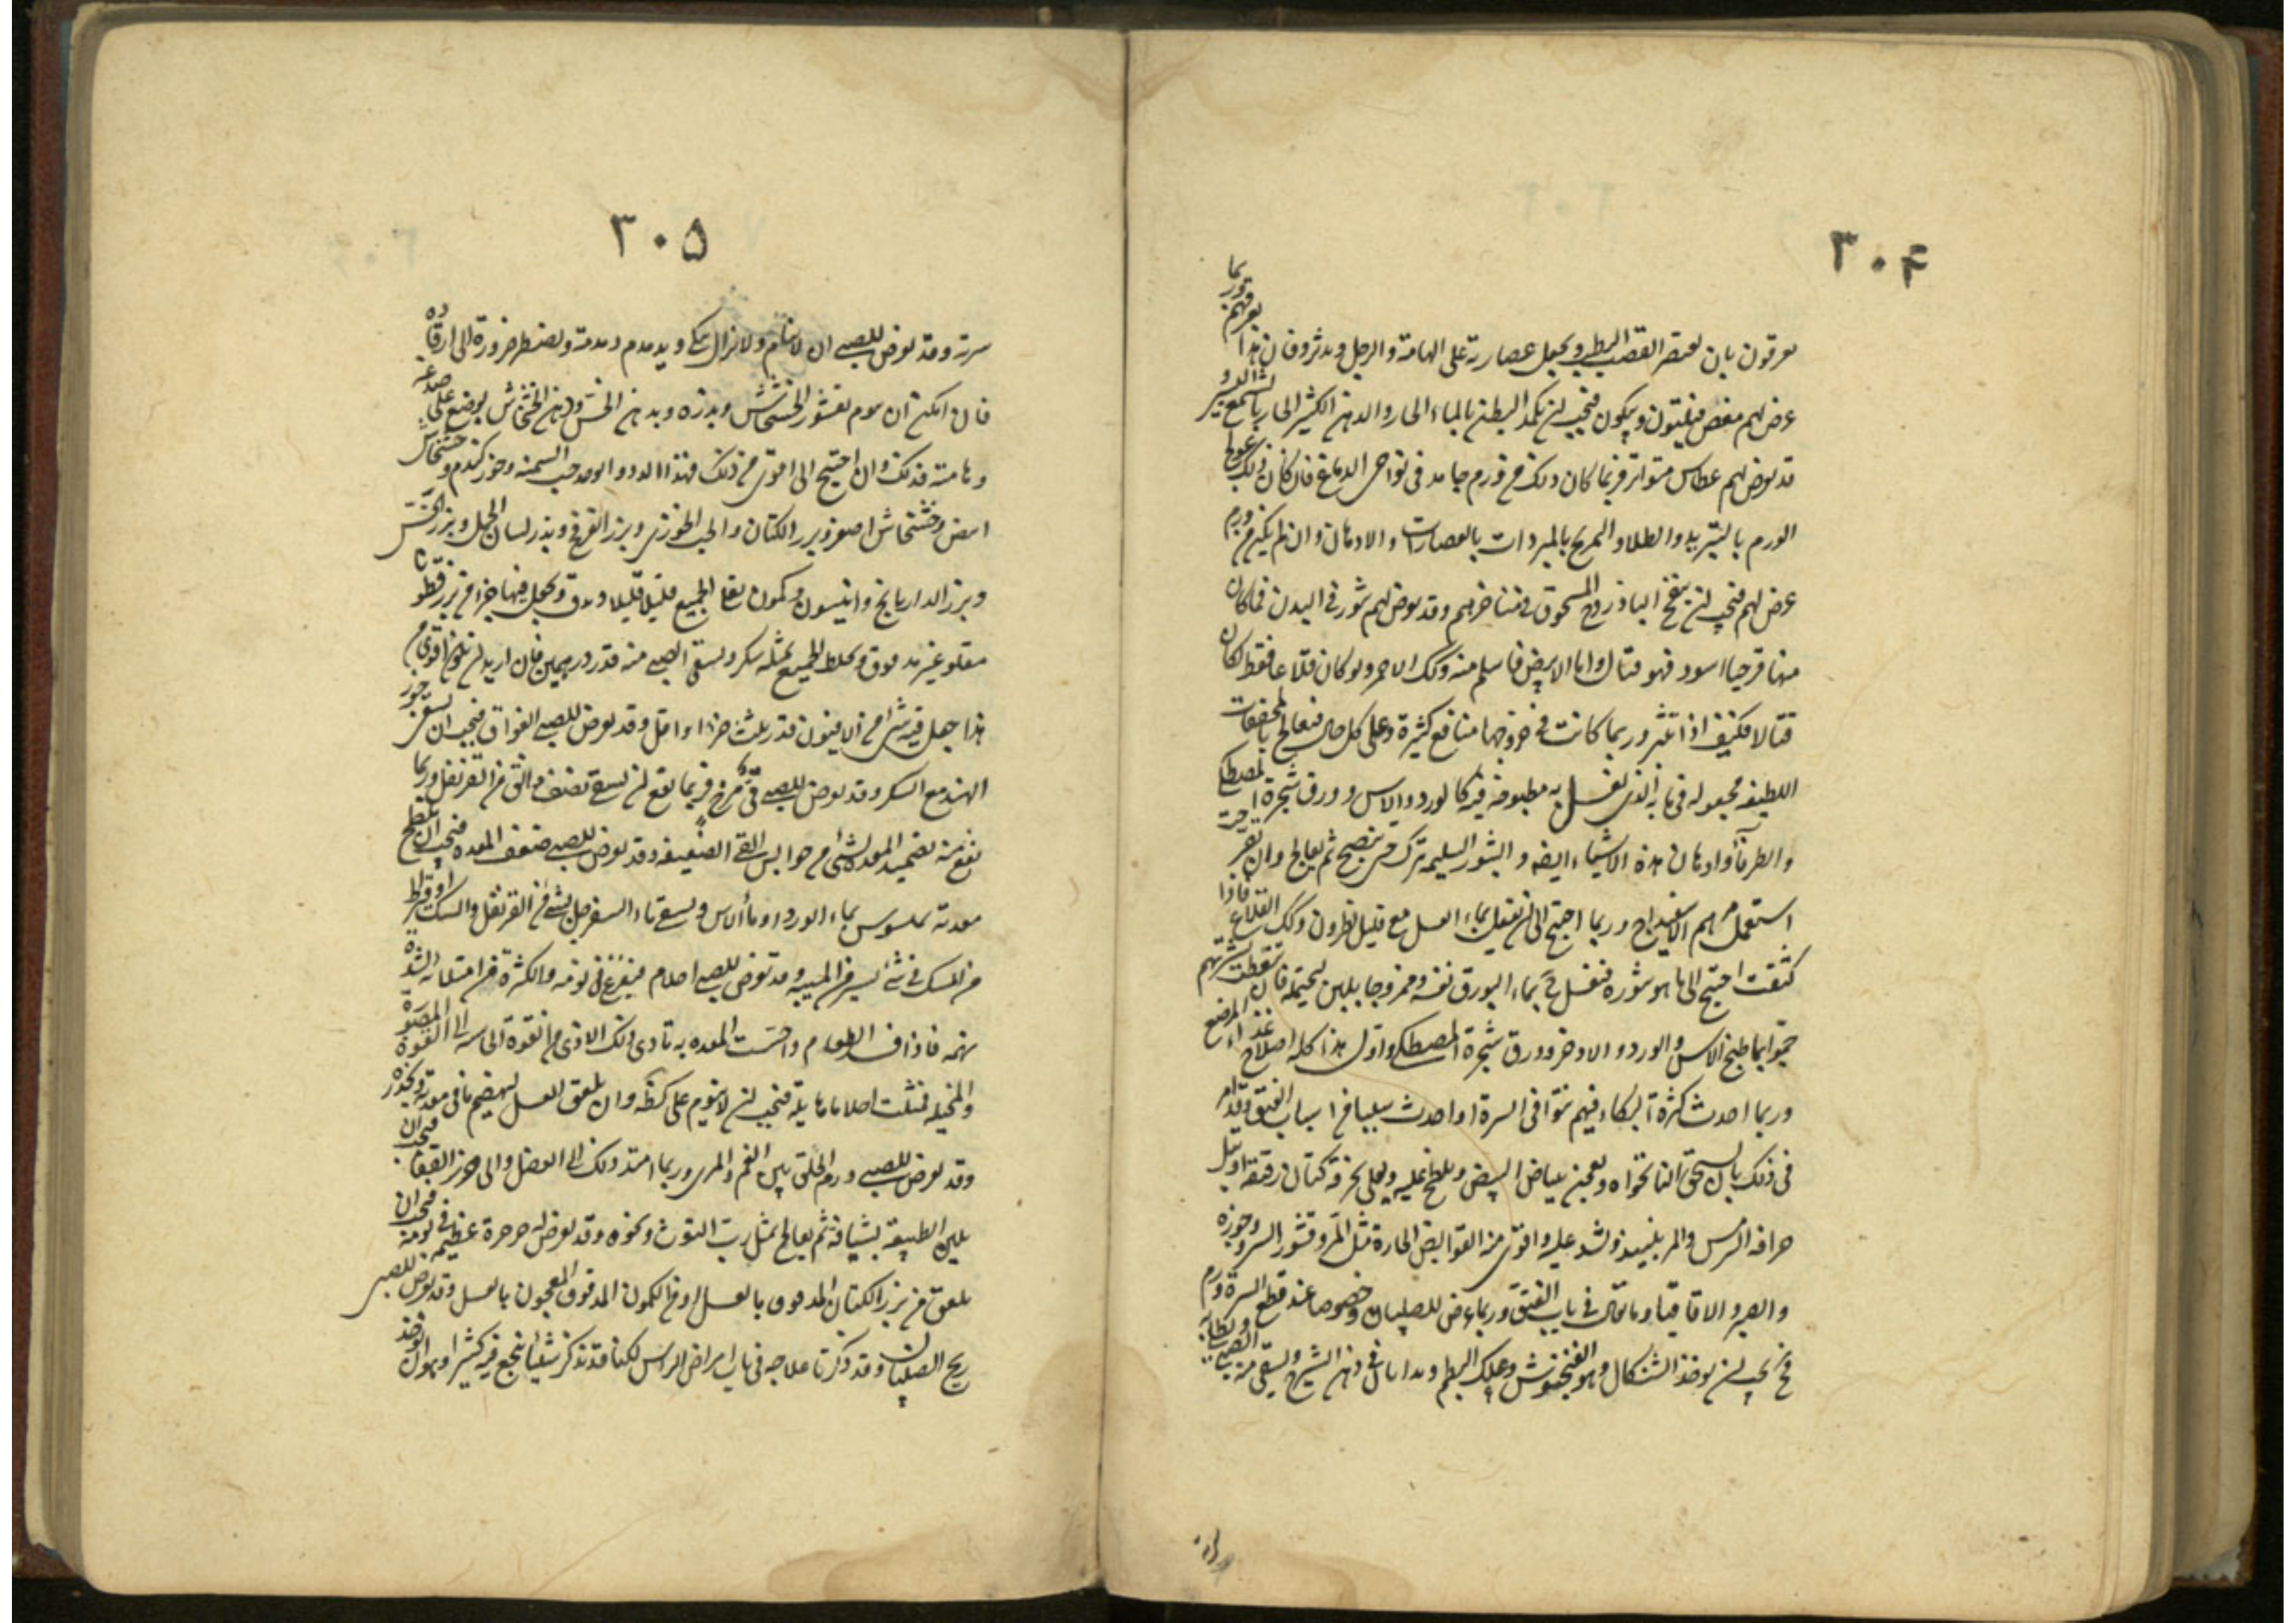 ۳۰۴
يعرقون بان يعتصر القصب الرطب ويجعل عصارته على الهامة والرجل ويدثروا فان هذا يعرقهم وربما
عرض لهم مغص فيلتوون ويبكون فيجب ان يكمد البطن بالماء الحار والدهن الكثير الحار بالشمع اليسير و
قد يعرض لهم عطاس متواتر فربما كان ذلك من ورم حامد فى نواحى الدماغ فان كان ذلك عولج
الورم بالتبريد والطلاء والتمريخ بالمبردات بالعصارات والادهان وان لم يكن من ورم
عرض لهم فيجب ان ينفخ الباذروج المسحوق فى مناخرهم وقد يعرض لهم بثور فى البدن فما كان
منها قرحيا اسود فهو قتال واما الابيض فاسلم منه وكك الاحمر ولو كان قلاعا فقط لكان
قتالا فكيف اذا تبثر وربما كانت فى خروجها منافع كثيرة وعلى كل حال فيعالج بالمجففات
اللطيفه مجعوله فى مائه الذى يغسل به مطبوخه فيه كالورد والاس وورق شجرة المصطكى
والطرفا وادهان هذه الاشياء ايضه والبثور السليمه تترك حتى ينضج ثم يعالج وان تقرحت
استعمل مرهم الاسفيداج وربما احتيج الى ان يغسل بماء العسل مع قليل نطرون وكك القلاع فاذا
كثفت احتيج الى ما هو بثوره فيغسل ح بماء البورق نفسه وممزوجا بلبن ليحتمله فان تنفطت بشرتهم
حموا بماء طبخ الاس والورد والاذخر وورق شجرة المصطكى واول هذا كله اصلاح غذاء المرضع
وربما احدث كثرة البكاء فيهم نتوا فى السرة او احدث سببا من اسباب الفتق وقد امر
فى ذلك بان يسحق النانخواه ويعجن ببياض البيض ويلطخ عليه ويعلى بخرقة كتان رقيقه او تبل
حراقه الترمس والمر بنبيذ وتشد عليه واقوى منه القوابض الحارة مثل المر وقشور السرو وجوزه
والصبر والاقاقيا وما يقال فى باب الفتق وربما عرض للصبيان وخصوصا عند قطع السرة ورم
وح يجب ان يوخذ الشنكال وهو الفنجنوش وعلك البطم ويذابان فى دهن الشيرج ويسقى منه الصبى ويطلى به
۳۰۵
سرته وقد يعرض للصبى ان لا ينام ولا يزال يبكى ويدمدم دمدمة ويضطر ضرورة الى ارقاده
فان امكن ان ينوم بقشور الخشخاش وبذره وبدهن الخس ودهن الخشخاش يوضع على صدغيه
وهامته فذلك وان احتيج الى اقوى من ذلك فهذا الدواء يوخذ حب السمنه وجوزكندم وخشخاش
ابيض وخشخاش اصفر وبزر الكتان والحب الخوزى وبزر الفرفخ وبذر لسان الحمل وبزر الخس
وبزر الدازيانج وانيسون وكمون يقلى الجميع قليلا قليلا ويدق ويجعل فيها جزء من بزر قطونا
مقلو غير مدقوق ويخلط الجميع بمثله سكر ويسقى الصبى منه قدر درهمين فان اريد ان يكون اقوى من
هذا جعل فيه شئ من الافيون قدر ثلث جزء او اقل وقد يعرض للصبى الفواق فيجب ان يسقى جوز
الهند مع السكر وقد يعرض للصبى قئ مبرح فربما نفع ان يسقى نصف دانق من القرنفل وربما
نفع منه تضميد المعدة بشئ من حوابس القئ الضعيفه وقد يعرض للصبى ضعف المعدة فيجب ان يلطخ
معدته بميسوس بماء الورد او ماء الاس ويسقى ماء السفرجل بشئ من القرنفل والسك او قيراط
من السك فى شئ يسير من الميبه وقد تعرض للصبى احلام فيفزع فى نومه والكثرة من امتلائه لشدة
نهمه فاذا فسد الطعام واحست المعده به تادى ذلك الاذى من القوة الحاسه الى القوة المصورة
والمخيله فمثلت احلاما هايلة فيجب ان لا ينوم على كظه وان يلعق العسل ليهضم ما فى معدته ويحذره
وقد يعرض للصبى ورم الحلق بين الفم والمرى وربما امتد ذلك الى العضل والى خرز القفا فيجب ان
يلين الطبيعه بشيافه ثم يعالج بمثل رب التوت ونحوه وقد يعرض له خرخرة عظيمه فى نومه فيجب ان
يلعق من بزر الكتان المدقوق بالعسل او من الكمون المدقوق المعجون بالعسل وقد يعرض للصبى
ريح الصبيان وقد ذكرنا علاجه فى باب امراض الراس لكنا قد نذكر شيئا ينجع فيه كثيرا وهو ان يوخذ